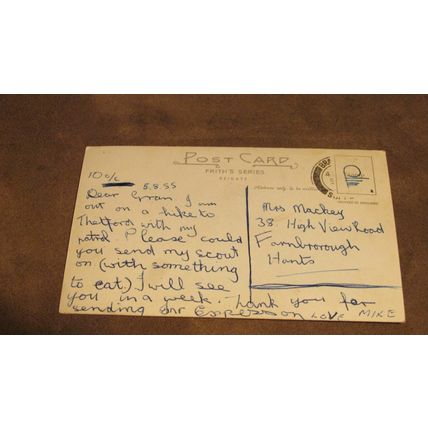 POST CARD
FRITH'S SERIES
REIGATE
Address only to be written
10 o/c
5.8.55
Dear Gran I am
out on a hike to
Thetford with my
patrol. Please could
you send my scout
on (with something
to eat.) I will see
you in a week. Thank you for
sending on
LOVE MIKE
Mrs Mackey
38. High View Road
Farnborough
Hants